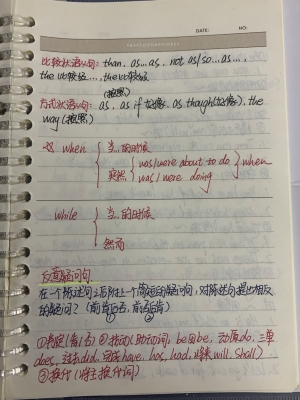 DATE:    NO:
比较状语从句: than, as...as, not as/so...as...,
the 比较级..., the 比较级
(按照)
方式状语从句: as, as if 好像, as though(好像), the
way (按照)
when { 当...的时候
突然 { was/were about to do } when
was/were doing
while { 当...的时候
然而
反意疑问句
在一个陈述句之后附上一个简短的疑问句,对陈述句提出相反
的疑问? (前肯后否, 前否后肯)
①判定(肯/否) ②找动(助动词) be四be, 动原do, 三单
does, 过去did, 完成have, has, had, 将来will, shall)
③换代 (将主换代词)